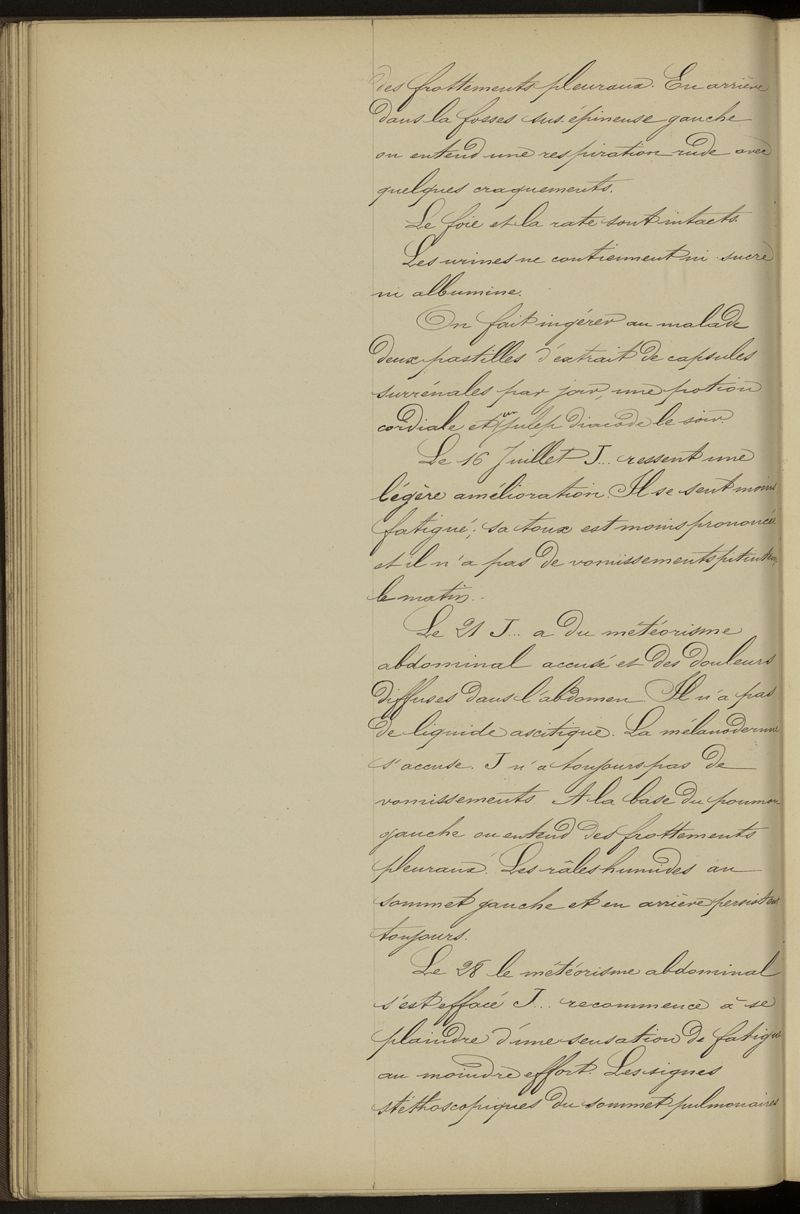 des frottements pleuraux. En arrière
dans la fosses sus. épineuse gauche
on entend une respiration rude avec
quelques craquements.
Le foie et la rate sont intacts.
Les urines ne contiennent ni sucre
ni albumine.
On fait ingérer au malade
deux pastilles d'extrait de capsules
surrénales par jour, une potion
cordiale et un julep diacode le soir.
Le 16 Juillet J... ressent une
légère amélioration. Il se sent moins
fatigué; sa toux est moins prononcée
et il n'a pas de vomissements
le matin..
Le 21 J... a du météorisme
abdominal accusé et des douleurs
diffuses dans l'abdomen. Il n'a pas
de liquide ascitique. La mélanodermie
s'accuse. J n'a toujours pas de
vomissements. A la base du poumon
gauche on entend des frottements
pleuraux. Les râles humides au
sommet gauche et en arrière persistent
toujours.
Le 28 le météorisme abdominal
s'est effacé J... recommence à se
plaindre d'une sensation de fatigue
au moindre effort. Les signes
stéthoscopiques du sommet pulmonaires